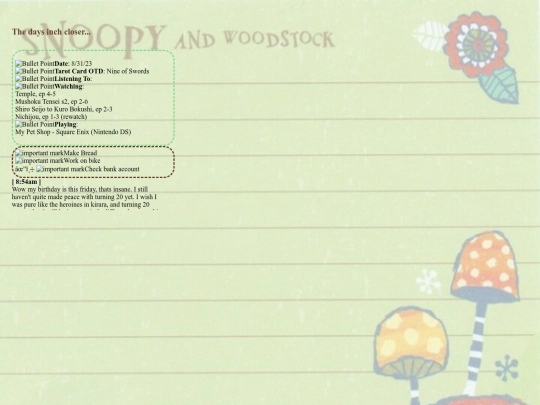 SNOOPY AND WOODSTOCK
The days inch closer...
Bullet PointDate: 8/31/23
Bullet PointTarot Card OTD: Nine of Swords
Bullet PointListening To:
Bullet PointWatching:
Temple, ep 4-5
Mushoku Tensei s2, ep 2-6
Shiro Seijo to Kuro Bokushi, ep 2-3
Nichijou, ep 1-3 (rewatch)
Bullet PointPlaying:
My Pet Shop - Square Enix (Nintendo DS)
important markMake Bread
important markWork on bike
important markCheck bank account
[ 8:54am ]
Wow my birthday is this friday, thats insane. I still
haven't quite made peace with turning 20 yet. I wish I
was pure like the heroines in kirara, and turning 20